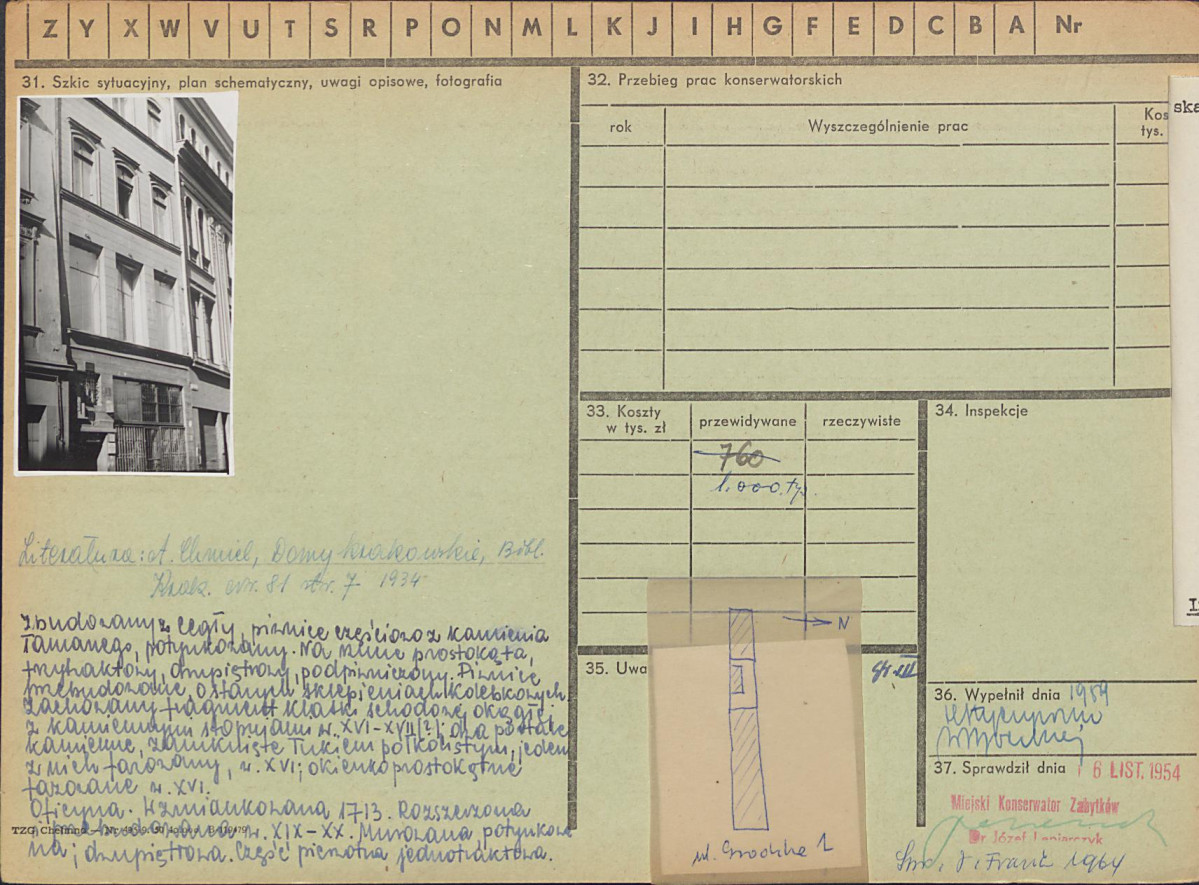 Z Y X W V U T S R P O N M L K J I H G F E D C B A Nr
31. Szkic sytuacyjny, plan schematyczny, uwagi opisowe, fotografia
Literatura: A. Chmiel, Domy krakowskie, Bibl.
Krak. nr. 81 str. 7 1934
Zbudowany z cegły, piwnice częściowo z kamienia
łamanego, potynkowany. Na planie prostokąta,
trzytraktowy, dwupiętrowy, podpiwniczony. Piwnice
przebudowane, o starych sklepieniach kolebkowych.
Zachowany fragment klatki schodowej okrągłej
z kamiennymi stopniami w. XVI-XVII(?); dwa portale
kamienne, zamknięte łukiem półkolistym, jeden
z nich fazowany, w. XVI; okienko prostokątne
fazowane w. XVI.
Oficyna. Wzmiankowana 1713. Rozszerzona
w. XIX-XX. Murowana potynkowa
na; dwupiętrowa. Część pierwotna jednotraktowa.
TZG Chełmno
32. Przebieg prac konserwatorskich
rok Wyszczególnienie prac Kos
tys.
ska
33. Koszty
w tys. zł przewidywane rzeczywiste
760
1.000 ty.
34. Inspekcje
N
35. Uwa
ul. Grodzka 1
36. Wypełnił dnia 1959
37. Sprawdził dnia 6 LIST. 1954
Miejski Konserwator Zabytków
Dr Józef
1964